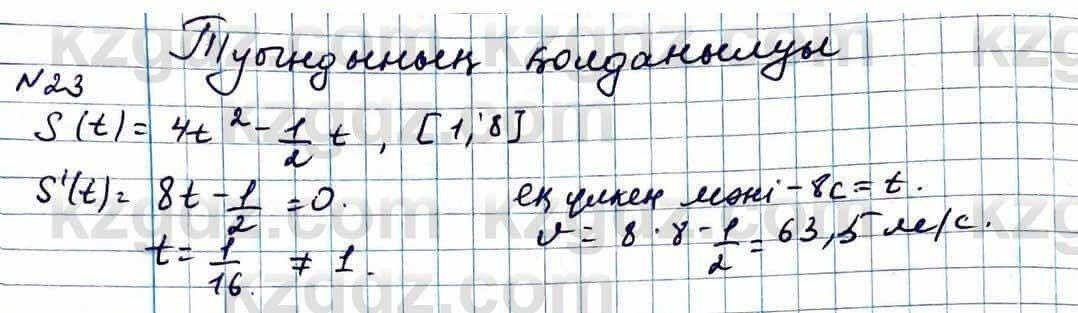 Туындының қолданылуы
№23
S(t) = 4t² - 1/2 t, [1; 8]
S'(t) = 8t - 1/2 = 0.
t = 1/16. ≠ 1.
ең үлкен мәні - 8c = t.
v = 8 · 8 - 1/2 = 63,5 м/с.
kzgdz.com